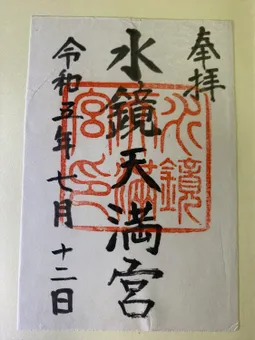 奉拝
水鏡天満宮
水鏡天満宮印
令和五年七月十二日